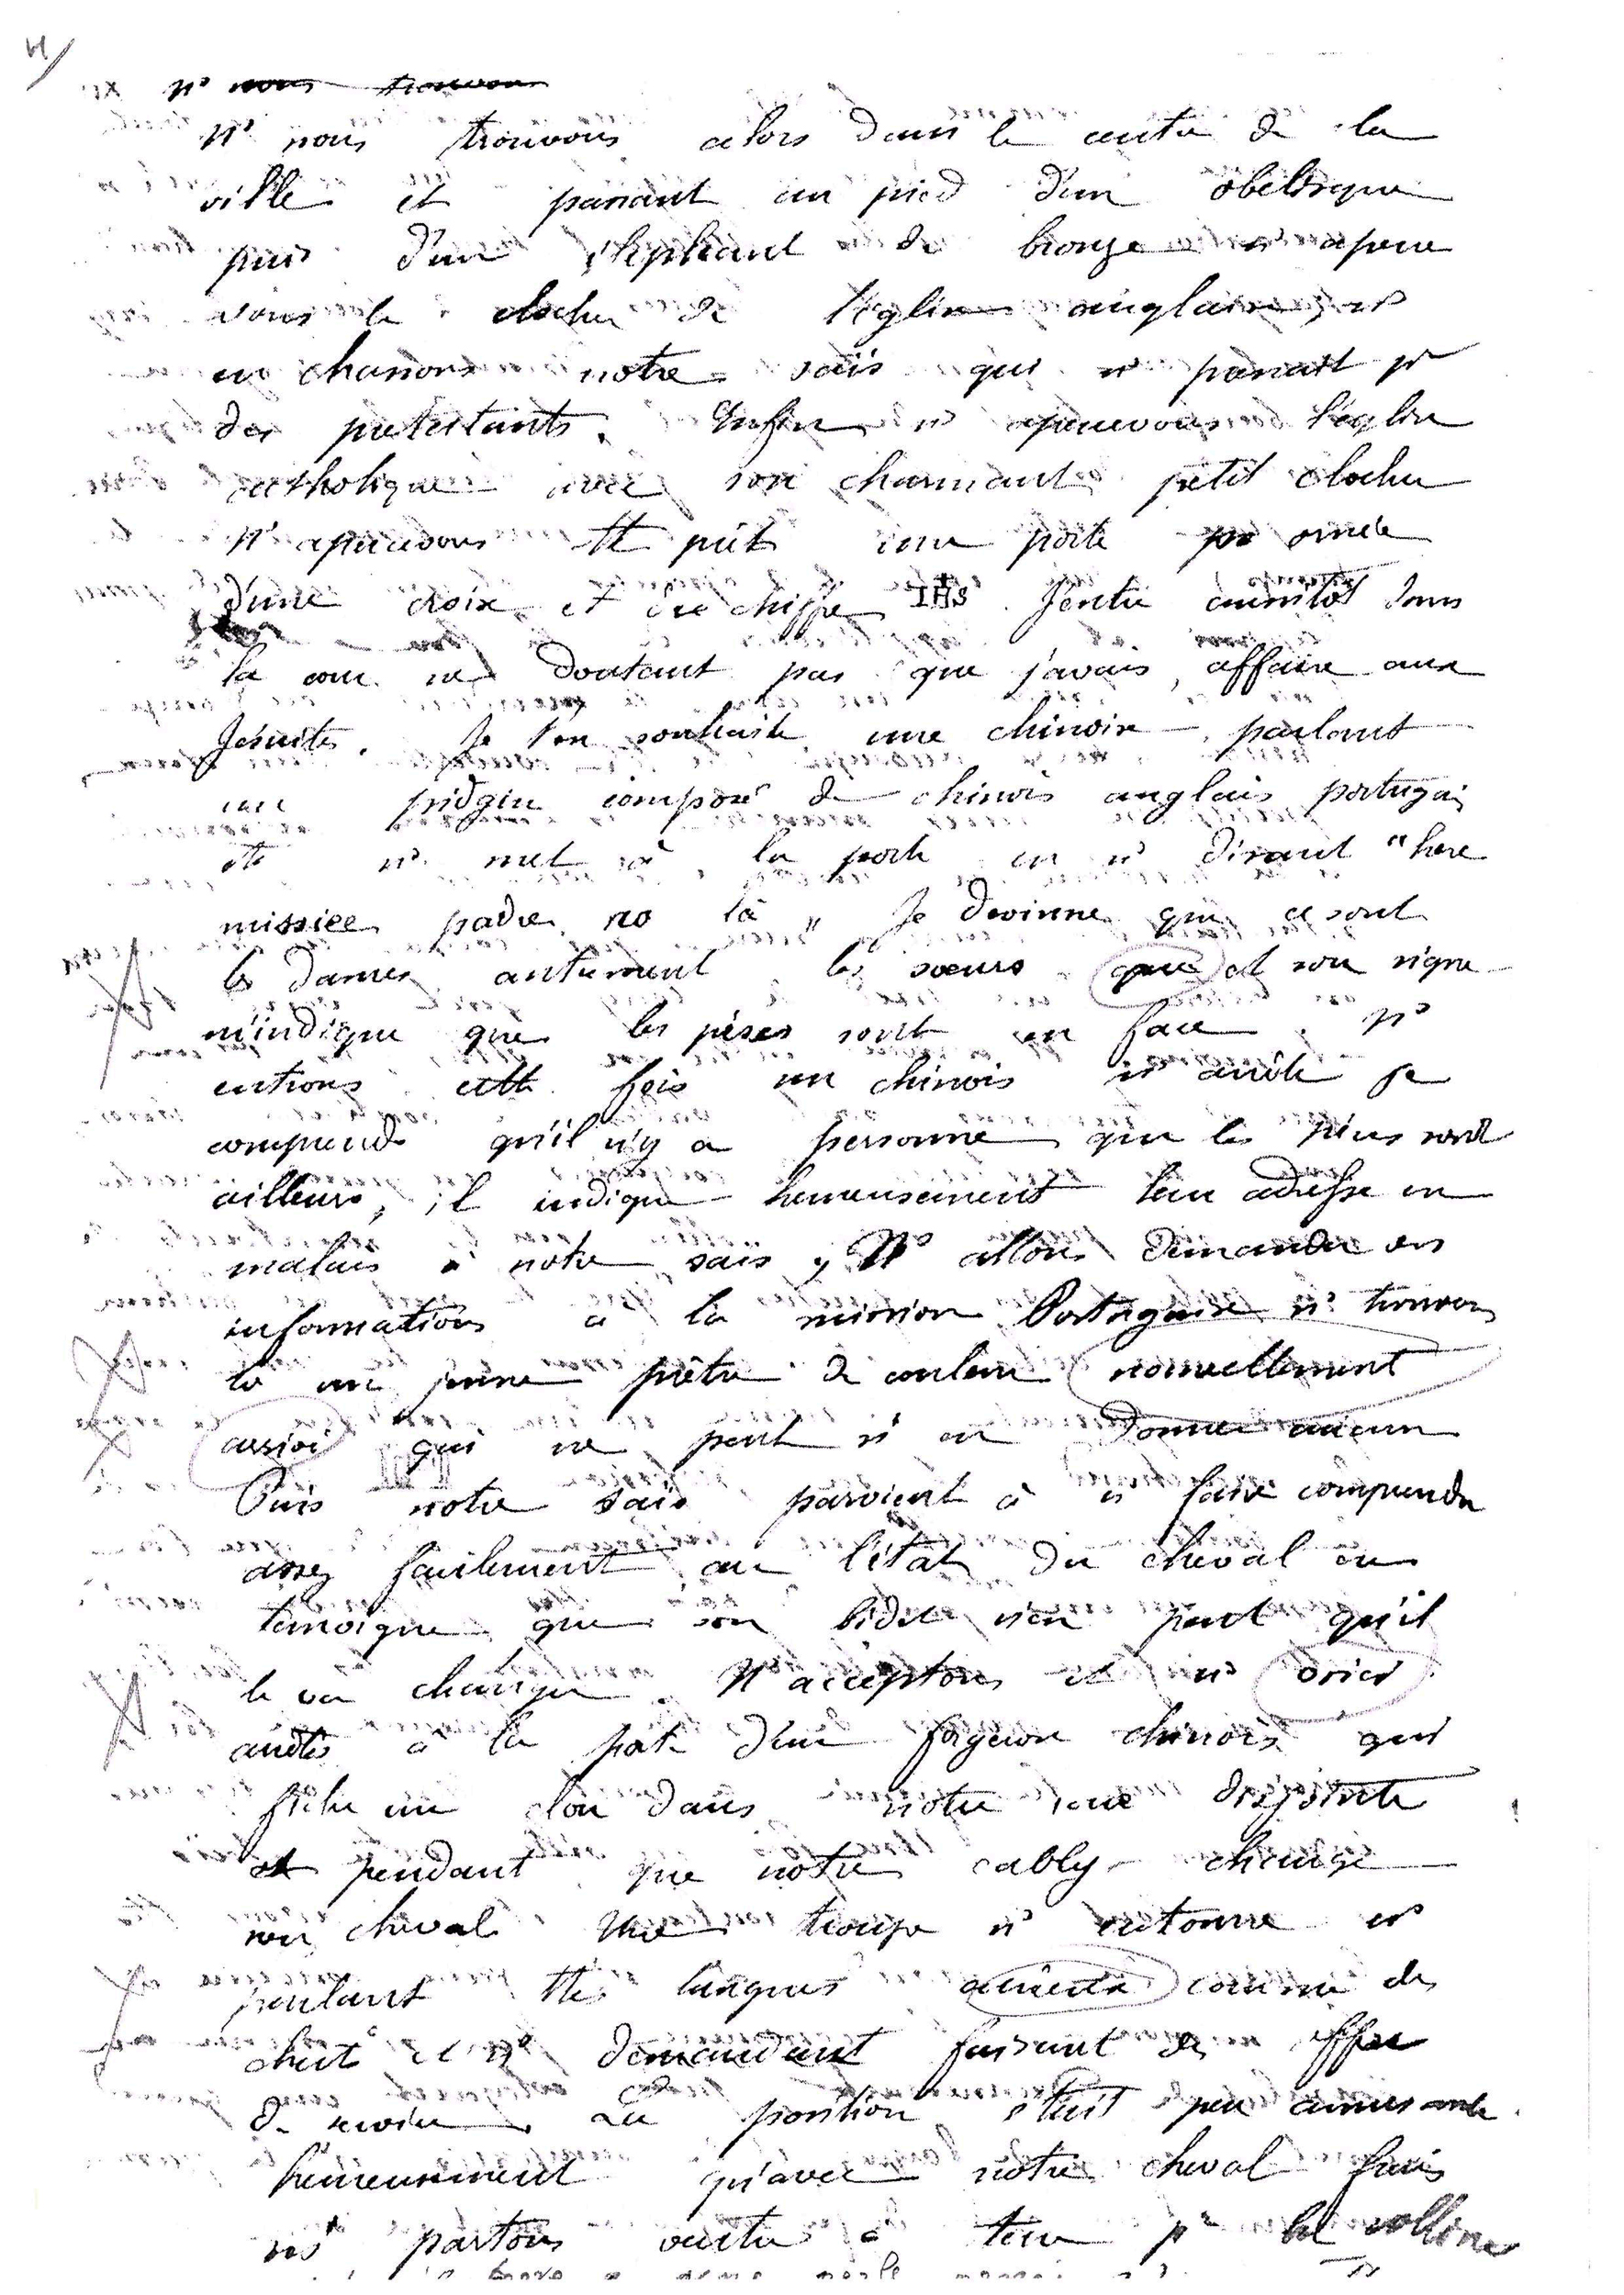 n^s nous trouvons
N^s nous trouvons alors dans le centre de la
ville et passant au pied d'un obélisque
puis d'un éléphant de bronze n^s aperce
vons le clocher de l'église anglaise, n^s
en chassons notre saïs qui n^s prenait pr
des protestants. Enfin n^s apercevons l'église
catholique avec son charmant petit clocher
N^s apercevons tt près une porte ornée
d'une croix et du chiffre IHS. J'entre aussitôt dans
la cour ne doutant pas que j'avais affaire aux
Jésuites. Je l'en souhaite une chinoise parlant
un pidgin composé de chinois anglais portugais
etc n^s met à la porte en n^s disant "here
missiee padre no là" Je devinne que ce sont
les dames autrement les soeurs que et son signe
m'indique que les pères sont en face. N^s
entrons cette fois un chinois n^s arrête je
comprends qu'il n'y a personne que les pères sont
ailleurs, il indique heureusement leur adresse en
malais à notre saïs, N^s allons demander des
informations à la mission Portugaise n^s trouvons
là un jeune prêtre de couleur nouvellement
qui ne peut n^s en donner aucun
Puis notre saïs parvient à n^s faire comprendre
assez facilement car l'état du cheval en
témoigne que son bidet n'en peut qu'il
le va changer. N^s acceptons et n^s
arrêtés à la porte d'un forgeron chinois qui
fiche un clou dans notre roue disjointe
et pendant que notre cably change
son cheval une troupe n^s entoure n^s
parlant ttes langues comme des
et n^s demandant faisant des offres
de La position était peu amusante
heureusement qu'avec notre cheval frais
n^s partons ventre à terre pr les collines